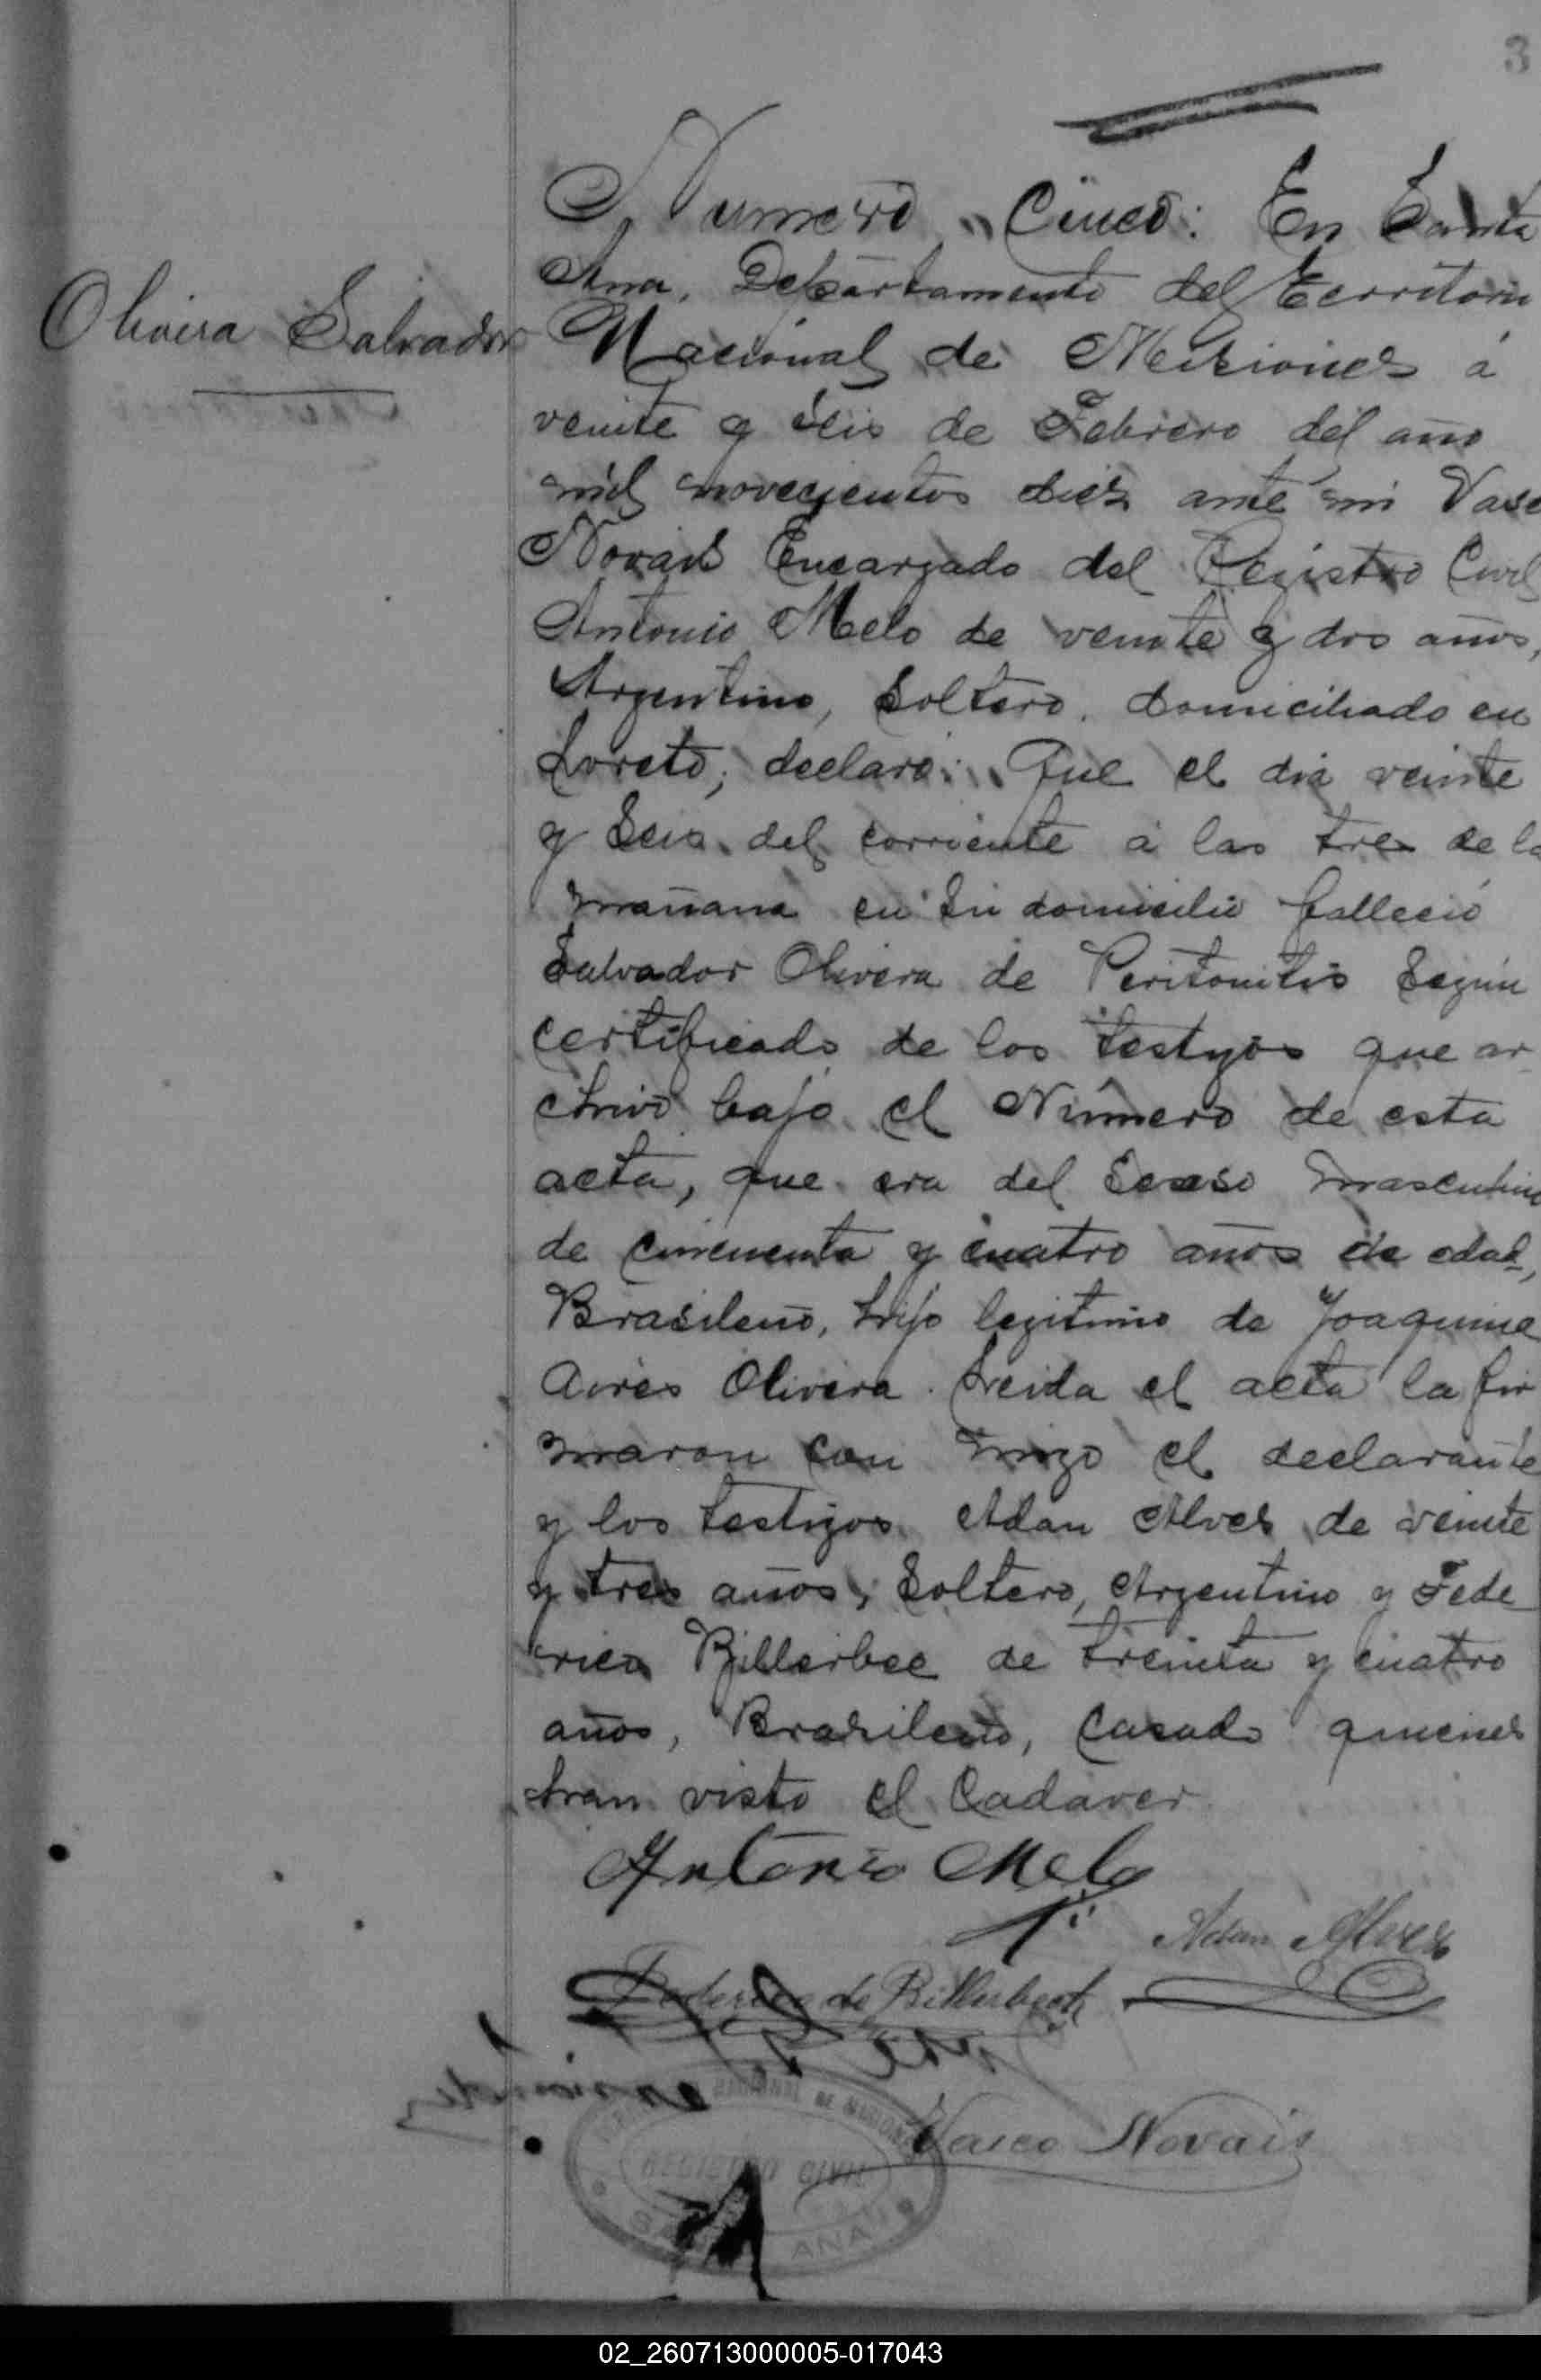 3
Numero "Cinco: En Santa
Ana, Departamento del Territorio
Olivera Salvador
Nacional de Misiones á
veinte y seis de Febrero del año
mil novecientos diez ante mi Vasc
Novais Encargado del Registro Civil
Antonio Melo de veinte y dos años,
Argentino, soltero, domiciliado en
Loreto, declaró: Que el dia veinte
y seis del corriente á las tres de la
mañana en su domicilio falleció
Salvador Olivera de Peritonitis según
certificado de los testigos que ar-
chivo bajo el Número de esta
acta, que era del sexso masculino
de cincuenta y cuatro años de edad,
Brasileno, hijo legitimo de Joaquine
Aires Olivera. Leida el acta la fir
maron con migo el declarante
y los testigos Adan Alves de veinte
y tres años, soltero, Argentino y Fede-
rico Billerbec de treinta y cuatro
años, Brasileño, casado quienes
han visto el Cadáver
Antonio Melo
Adan Alves
Federico de Billerbeck
NACIONAL DE MISIONES
Vasco Novais
REGISTRO CIVIL
SANTA ANA
02_260713000005-017043